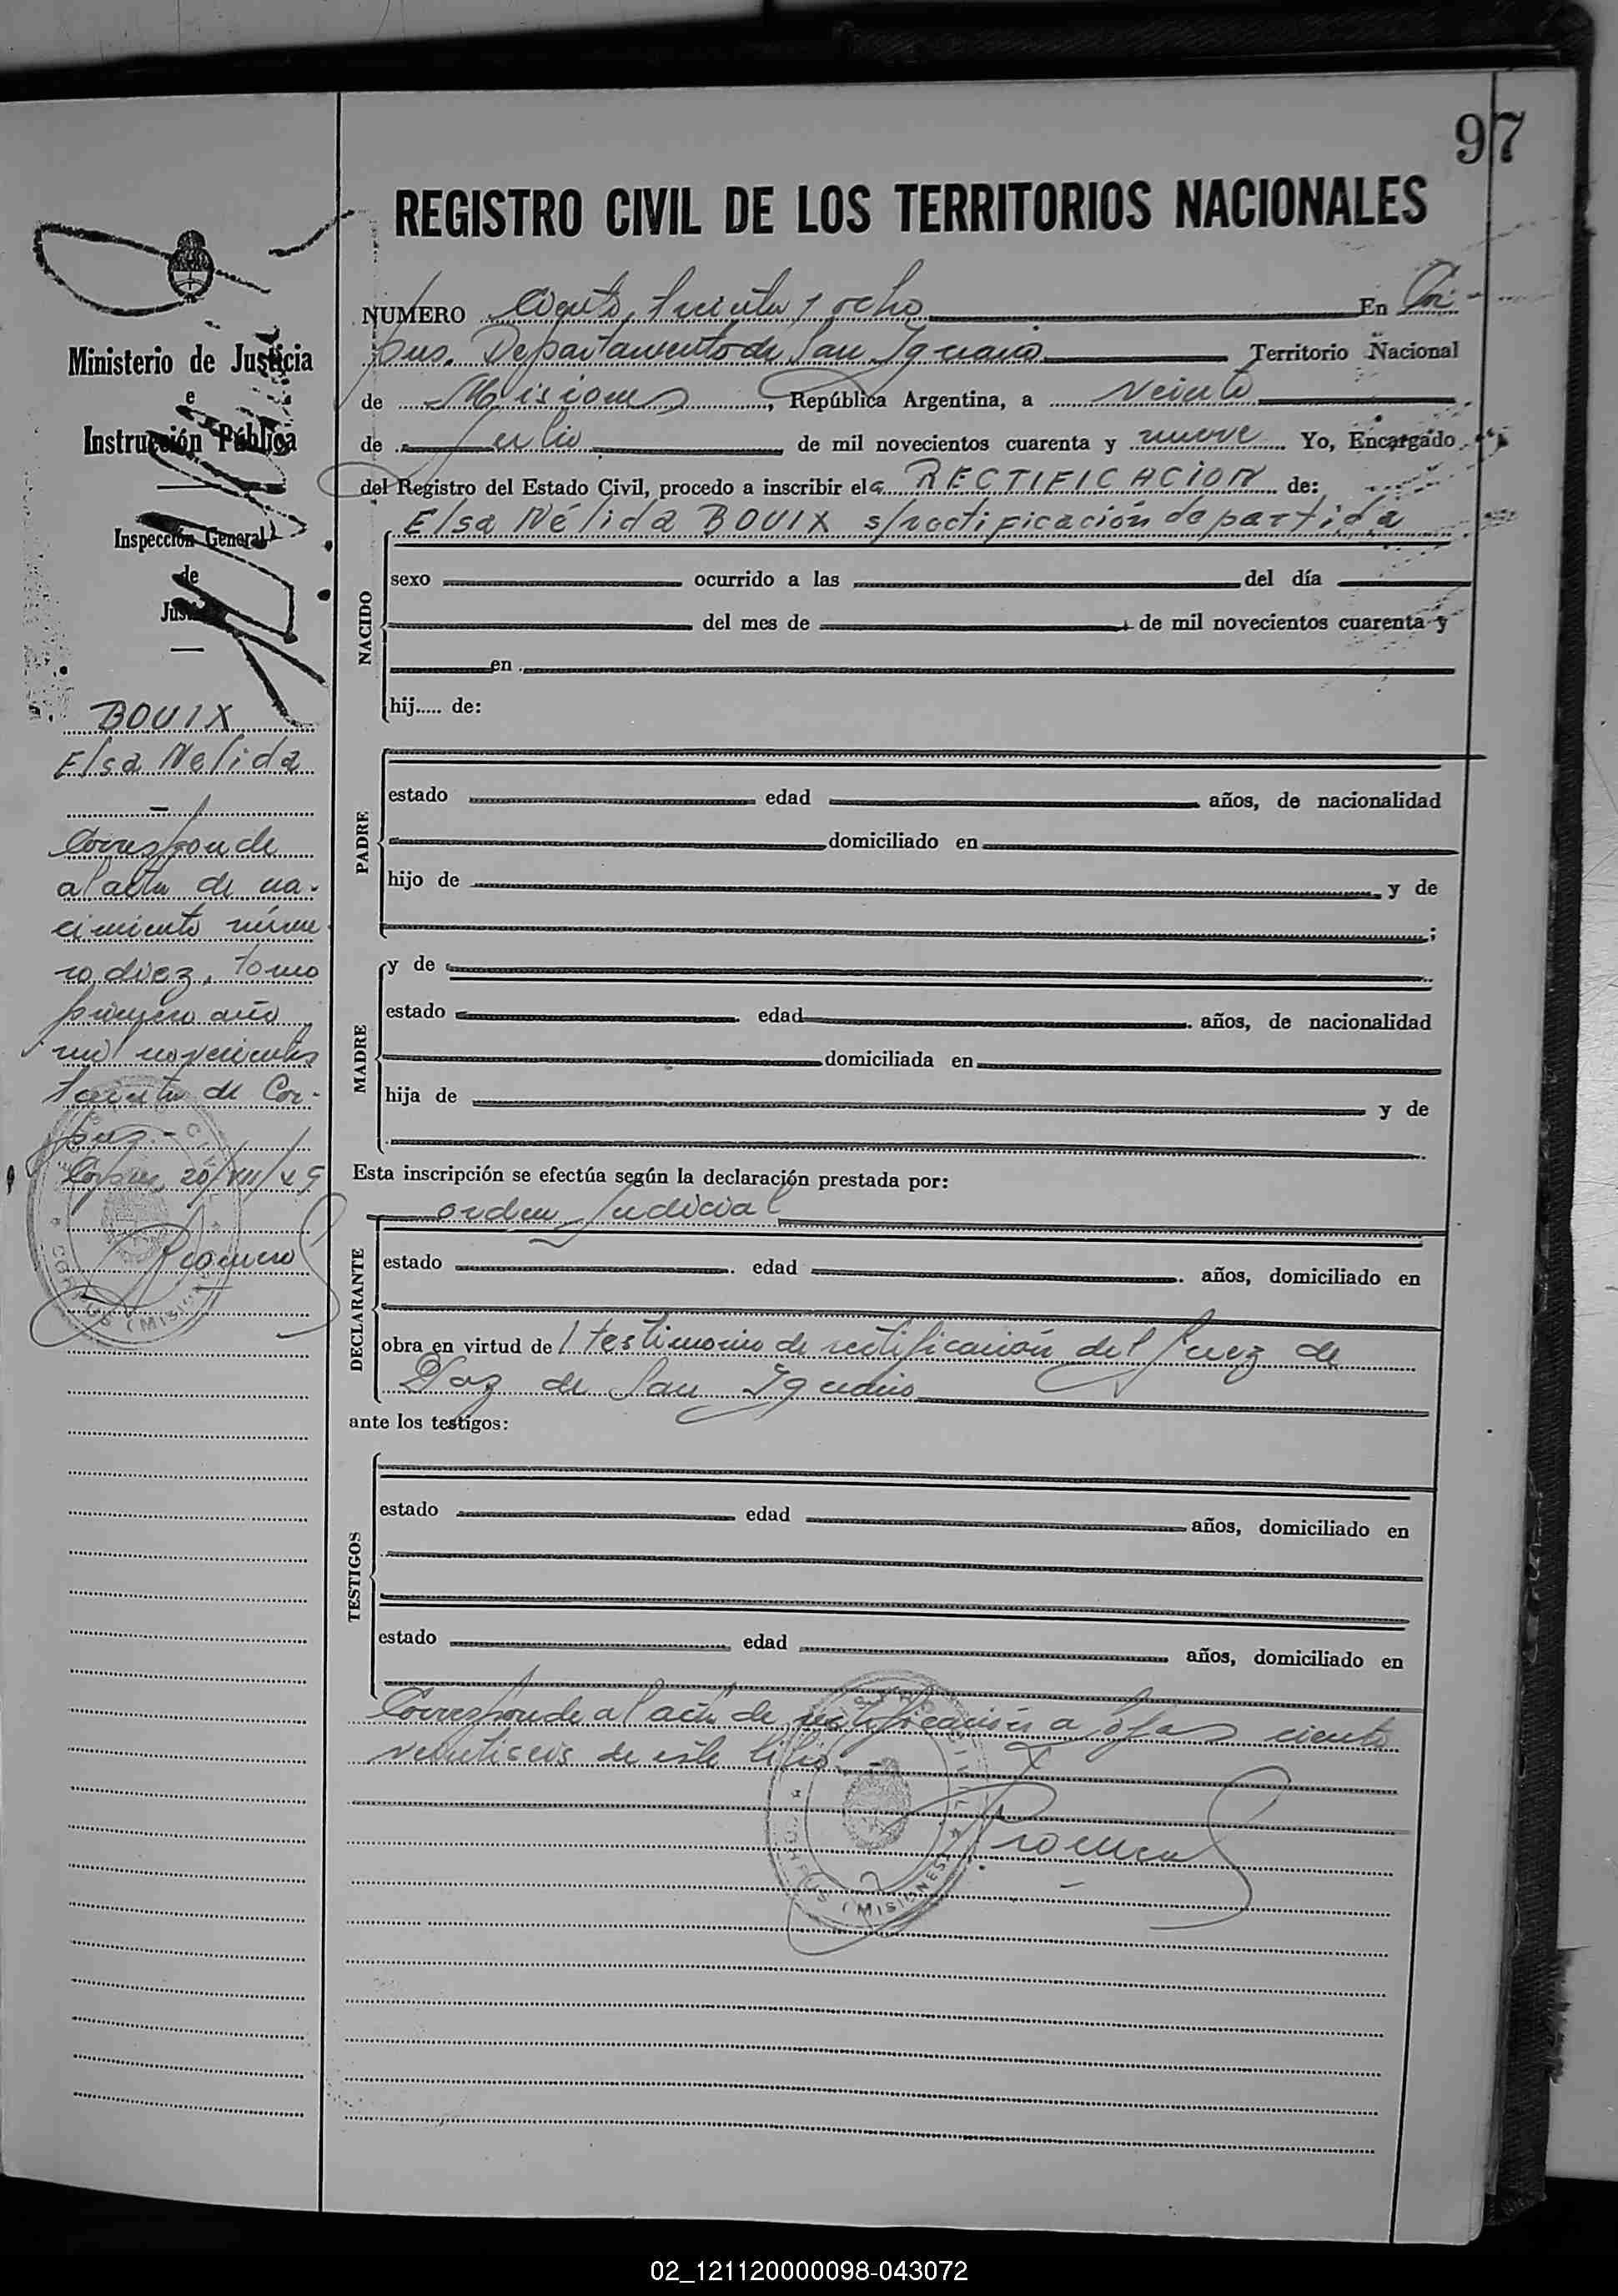 97
REGISTRO CIVIL DE LOS TERRITORIOS NACIONALES
NUMERO Ciento treinta y ocho En Cor-
pus. Departamento de San Ignacio Territorio Nacional
de Misiones, República Argentina, a veinte
de Julio de mil novecientos cuarenta y nueve Yo, Encargado
del Registro del Estado Civil, procedo a inscribir el a RECTIFICACION de:
Elsa Nélida BOUIX s/rectificación de partida
NACIDO
sexo ocurrido a las del día
del mes de de mil novecientos cuarenta y
en
hij..... de:
PADRE
estado edad años, de nacionalidad
domiciliado en
hijo de y de
;
MADRE
y de
estado edad años, de nacionalidad
domiciliada en
hija de y de
Esta inscripción se efectúa según la declaración prestada por:
orden Judicial
DECLARANTE
estado edad años, domiciliado en
obra en virtud de 1 testimonio de rectificación del Juez de
Paz de San Ignacio
ante los testigos:
TESTIGOS
estado edad años, domiciliado en
estado edad años, domiciliado en
Corresponde al acta de rectificación a fjas ciento
veintiseis de este libro.-
Romero
CORPUS (MISIONES)
Ministerio de Justicia
e
Instrucción Pública
Inspección General
de
Justicia
BOUIX
Elsa Nelida
-
Corresponde
al acta de na-
cimiento núme
ro diez, tomo
primero año
mil novecientos
treinta de Cor-
pus.-
Corpus, 20/VII/49
Romero
CORPUS (MISIONES)
02_121120000098-043072